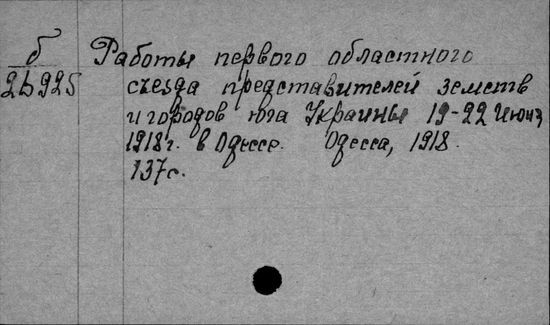 б Работы первого областного
2Ь925 съезда представителей земств
и городов юга Украины 19-22 июня
1918г. в Одессе. Одесса, 1918.
137с.